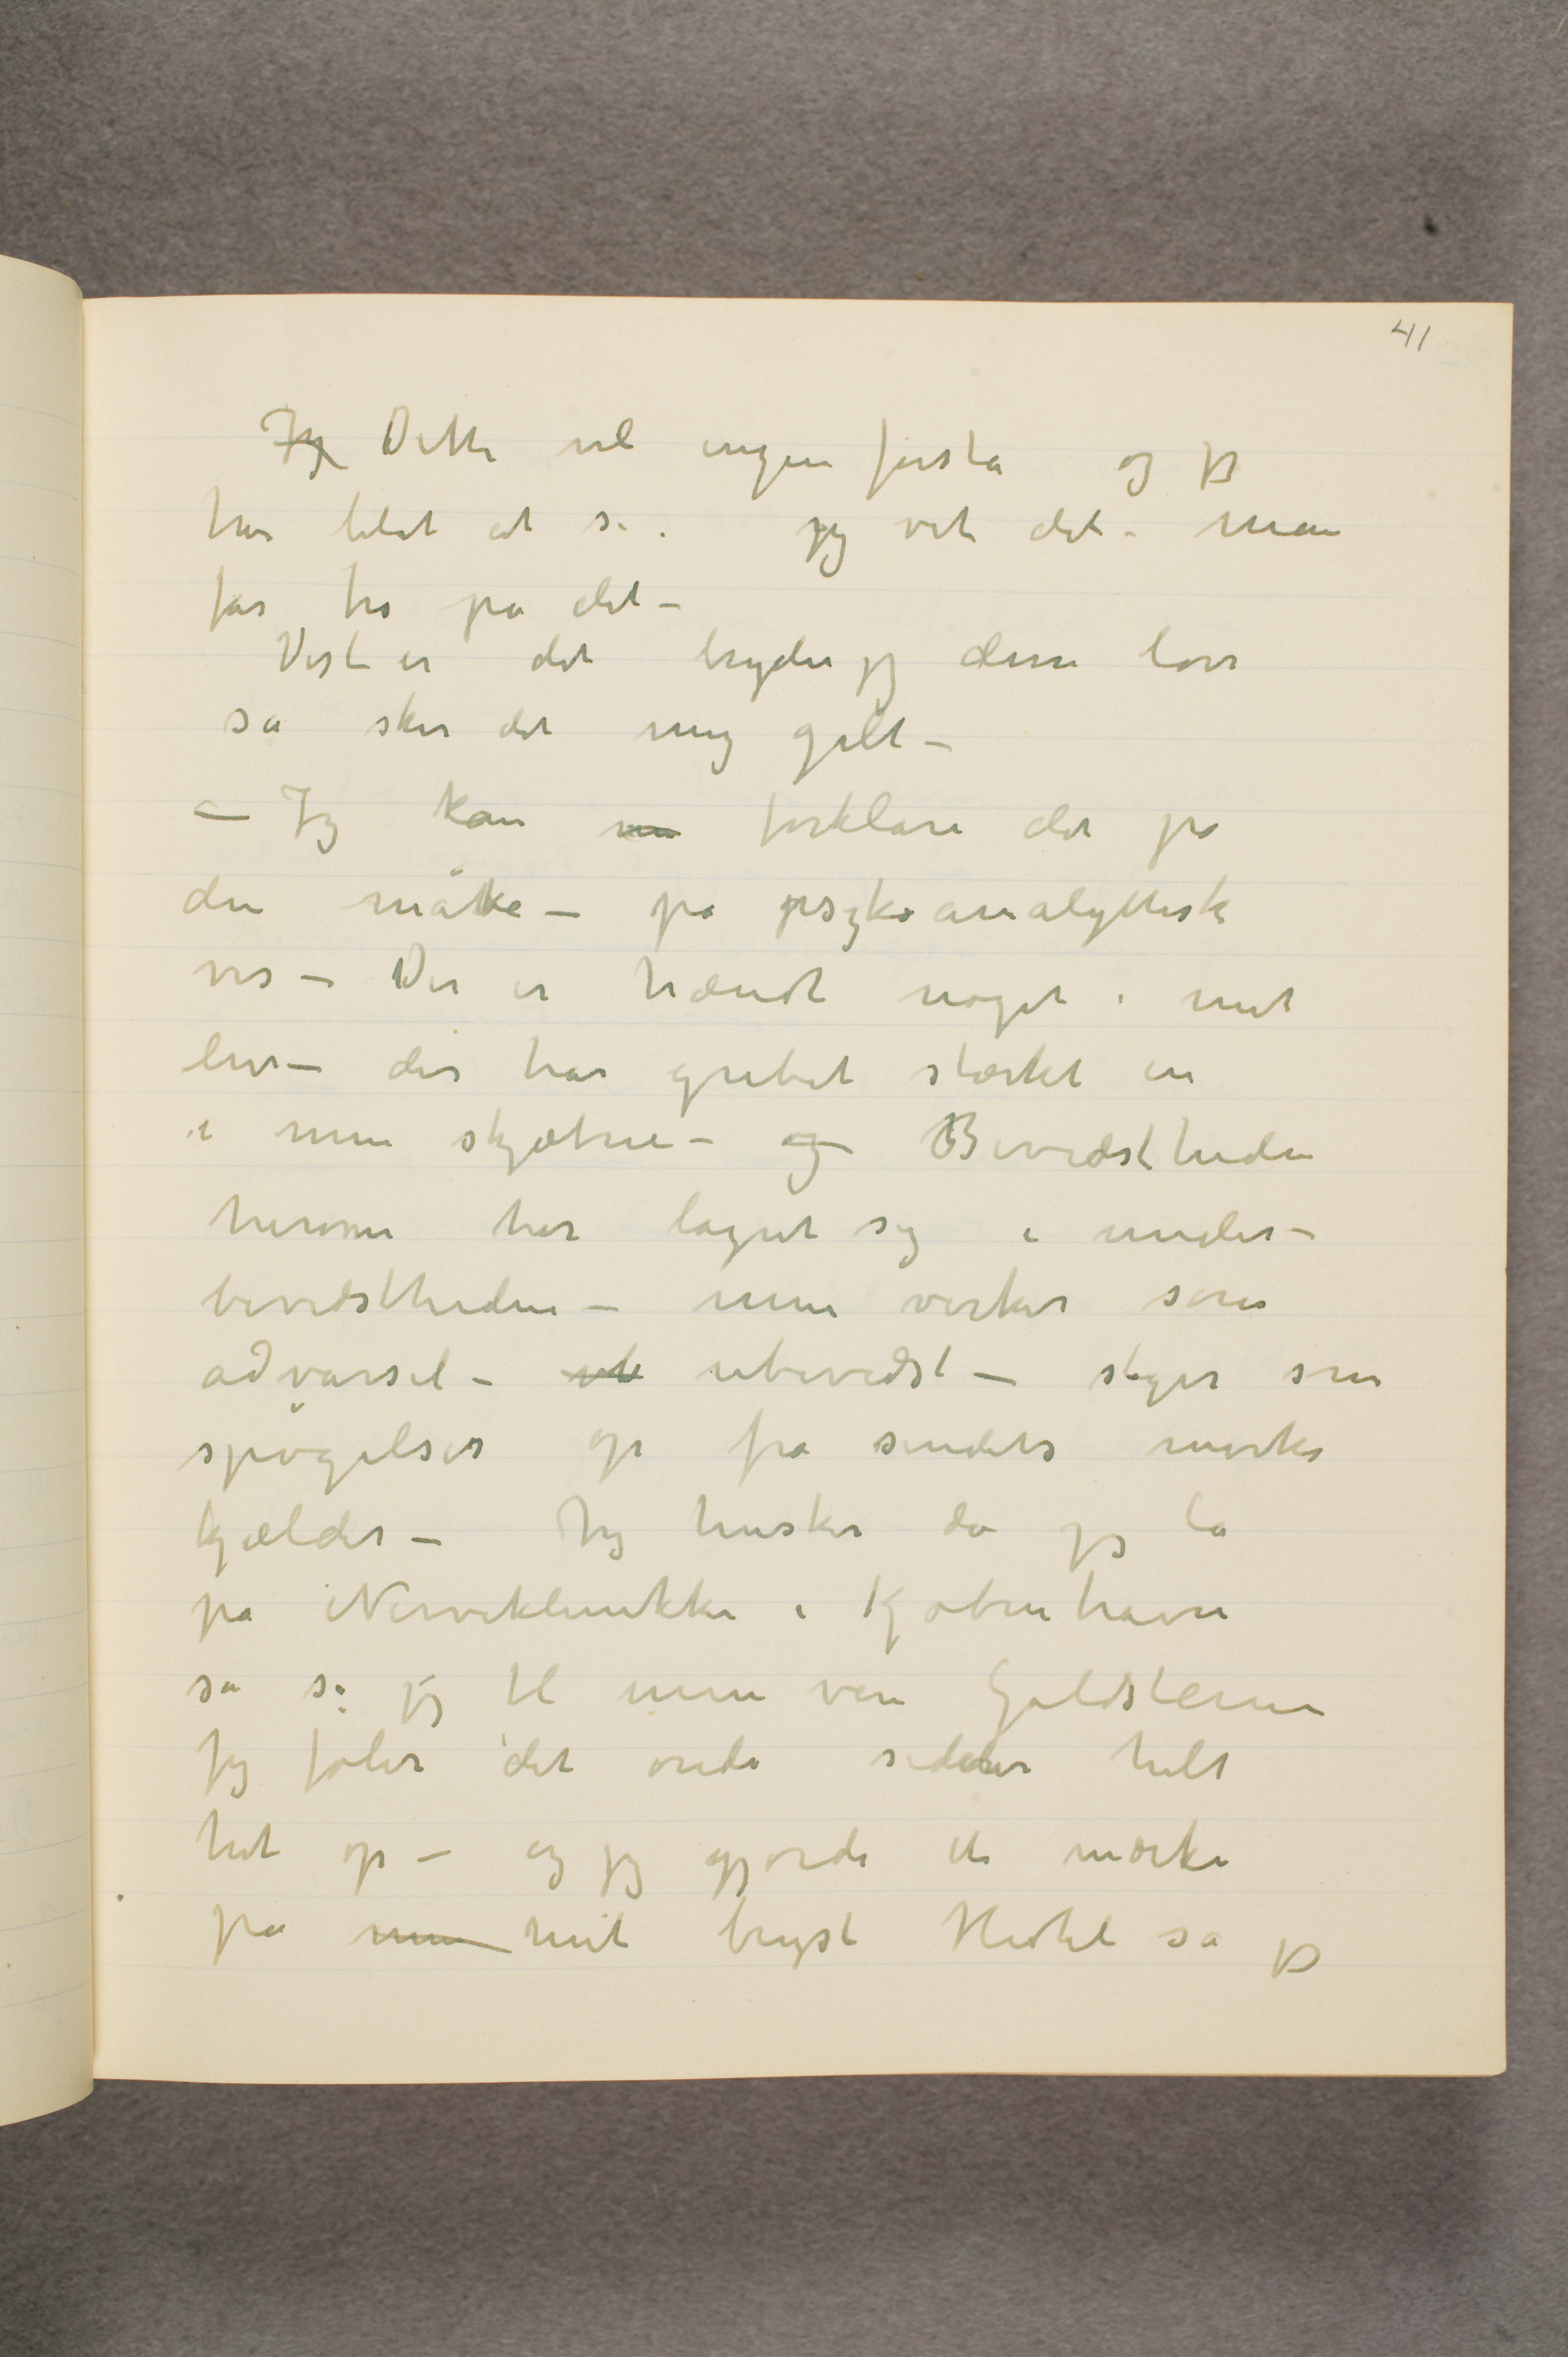 41
Jeg Dette vil ingen forstå og jeg
har blot at si. jeg vet det – man
får tro på det –
Vist er det bryder jeg denne lov
så sker det mig galt –
– Jeg kan nu forklare det på
den måtte – på psykoanalyttisk
vis – Der er hændt noget i mit
liv – der har grebet stærkt in
i min skjæbne – og Bevidstheden
herom har lagret sig i under-
bevidstheden – men virker som
advarsel – ub ubevidst – stiger som
spøgelser op fra sindets mørke
kjælder – Jeg husker da jeg lå
på Nerveklinikken i Kjøbenhavn
så sa jeg til min ven Goldstein
Jeg føler det onde sidder helt
hit op – og jeg gjorde et mærke
på min mit bryst Hidtil sa jeg